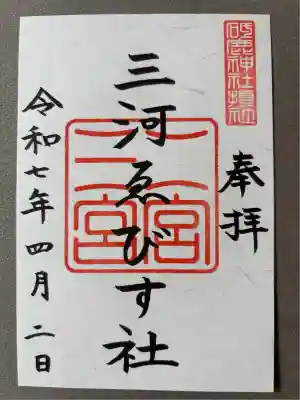 砥鹿神社摂社
奉拝
三河ゑびす社
二宮
三宮
令和七年四月二日